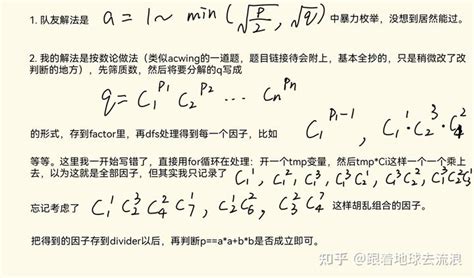 1. 队友解法是 a = 1 ~ min(√(p/2), √q) 中暴力枚举，没想到居然能过。
2. 我的解法是按数论做法（类似acwing的一道题，题目链接待会附上，基本全抄的，只是稍微改了改
判断的地方），先筛质数，然后将要分解的q写成
q = C₁^P₁ C₂^P₂ ... Cn^Pn
的形式，存到factor里，再dfs处理得到每一个因子，比如 C₁^P₁-1 , C₁¹·C₂³·C₄²
等等。这里我一开始写错了，直接用for循环在处理：开一个tmp变量，然后tmp*Ci这样一个一个乘上
去，以为这就是全部因子，但其实我只记录了 C₁¹, C₁², C₁³, C₁³C₂¹, C₁³C₂²
忘记考虑了 C₁¹C₂³C₄²C₇¹, C₂¹C₆², C₃²C₄³ 这样胡乱组合的因子。
把得到的因子存到divider以后，再判断p==a*a+b*b是否成立即可。
知乎 @跟着地球去流浪